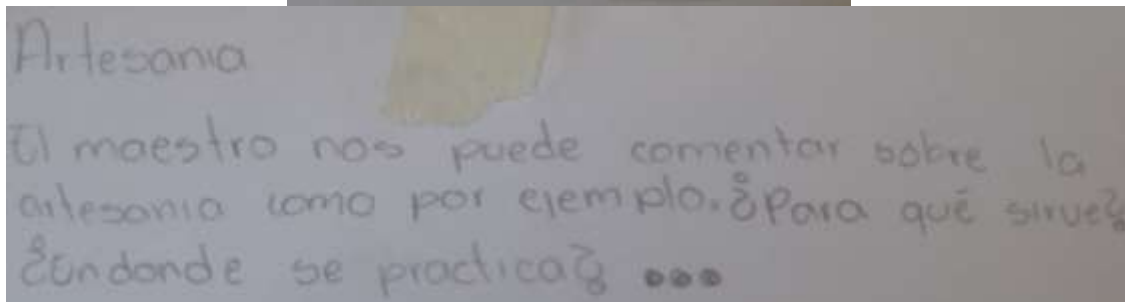 Artesania
El maestro nos puede comentar sobre la
artesania como por ejemplo. ¿Para qué sirve?
¿Endonde se practica? ...